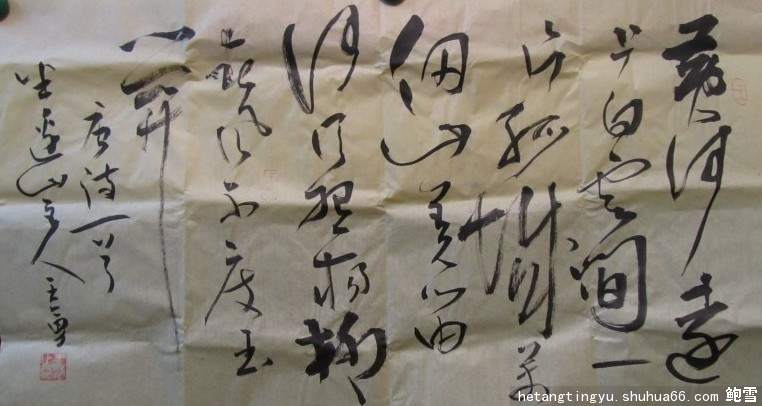 黄河遠
上白雲間一
片孤城萬
仞山羌笛
何須怨楊柳
春風不度玉
門關
唐詩一首
山主人
hetangtingyu.shuhua66.com 鲍雪